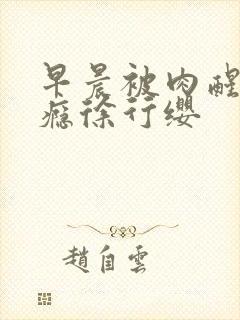 早晨被肉醒
瘾徐行缨
趙自雲